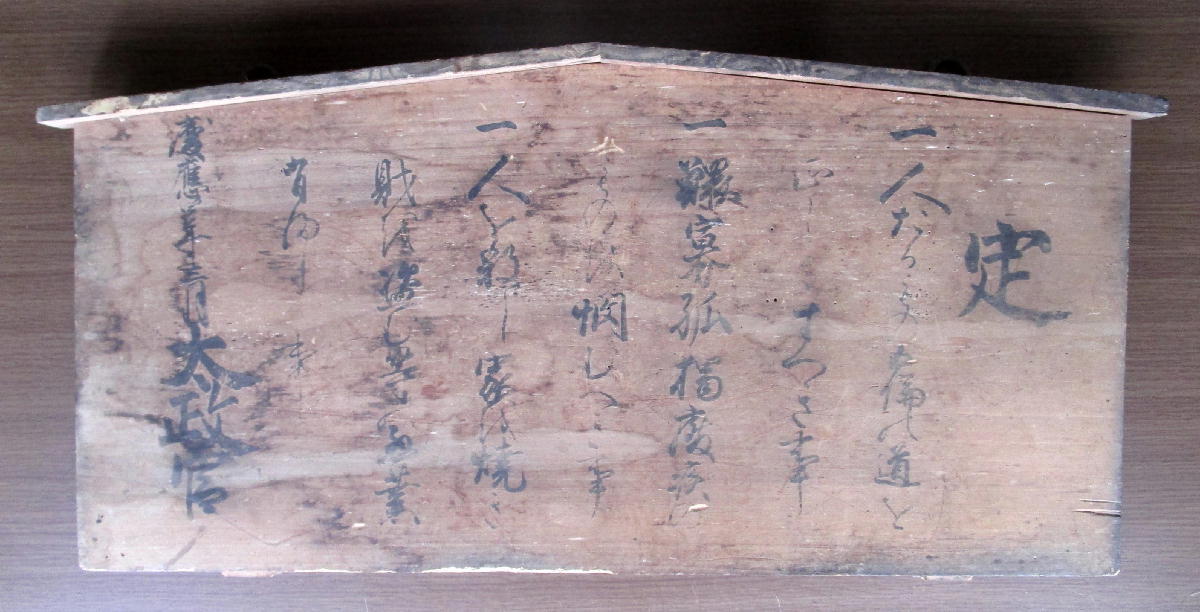 定
一 人たるもの五倫の道を
正しくすへき事
一 鰥寡孤獨廢疾の
ものを憫むへき事
一 人を殺し家を焼き
財を盗む等の惡業
有間敷事
慶應四年三月 太政官